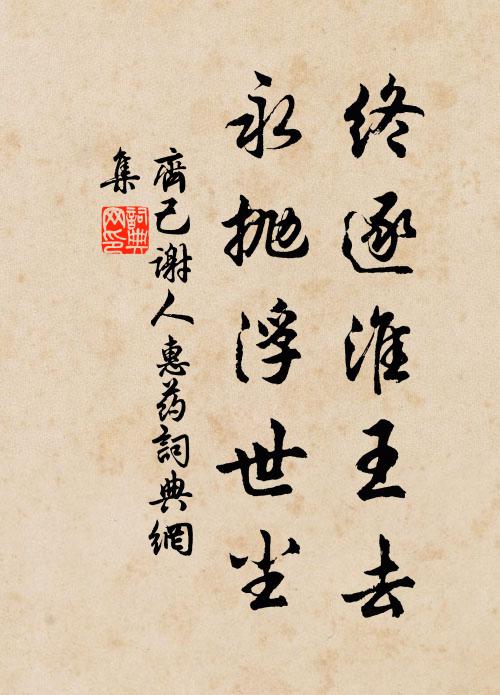 終逐淮王去
永抛浮世尘
齊己谢人惠药詞典網
集
詞典
网印